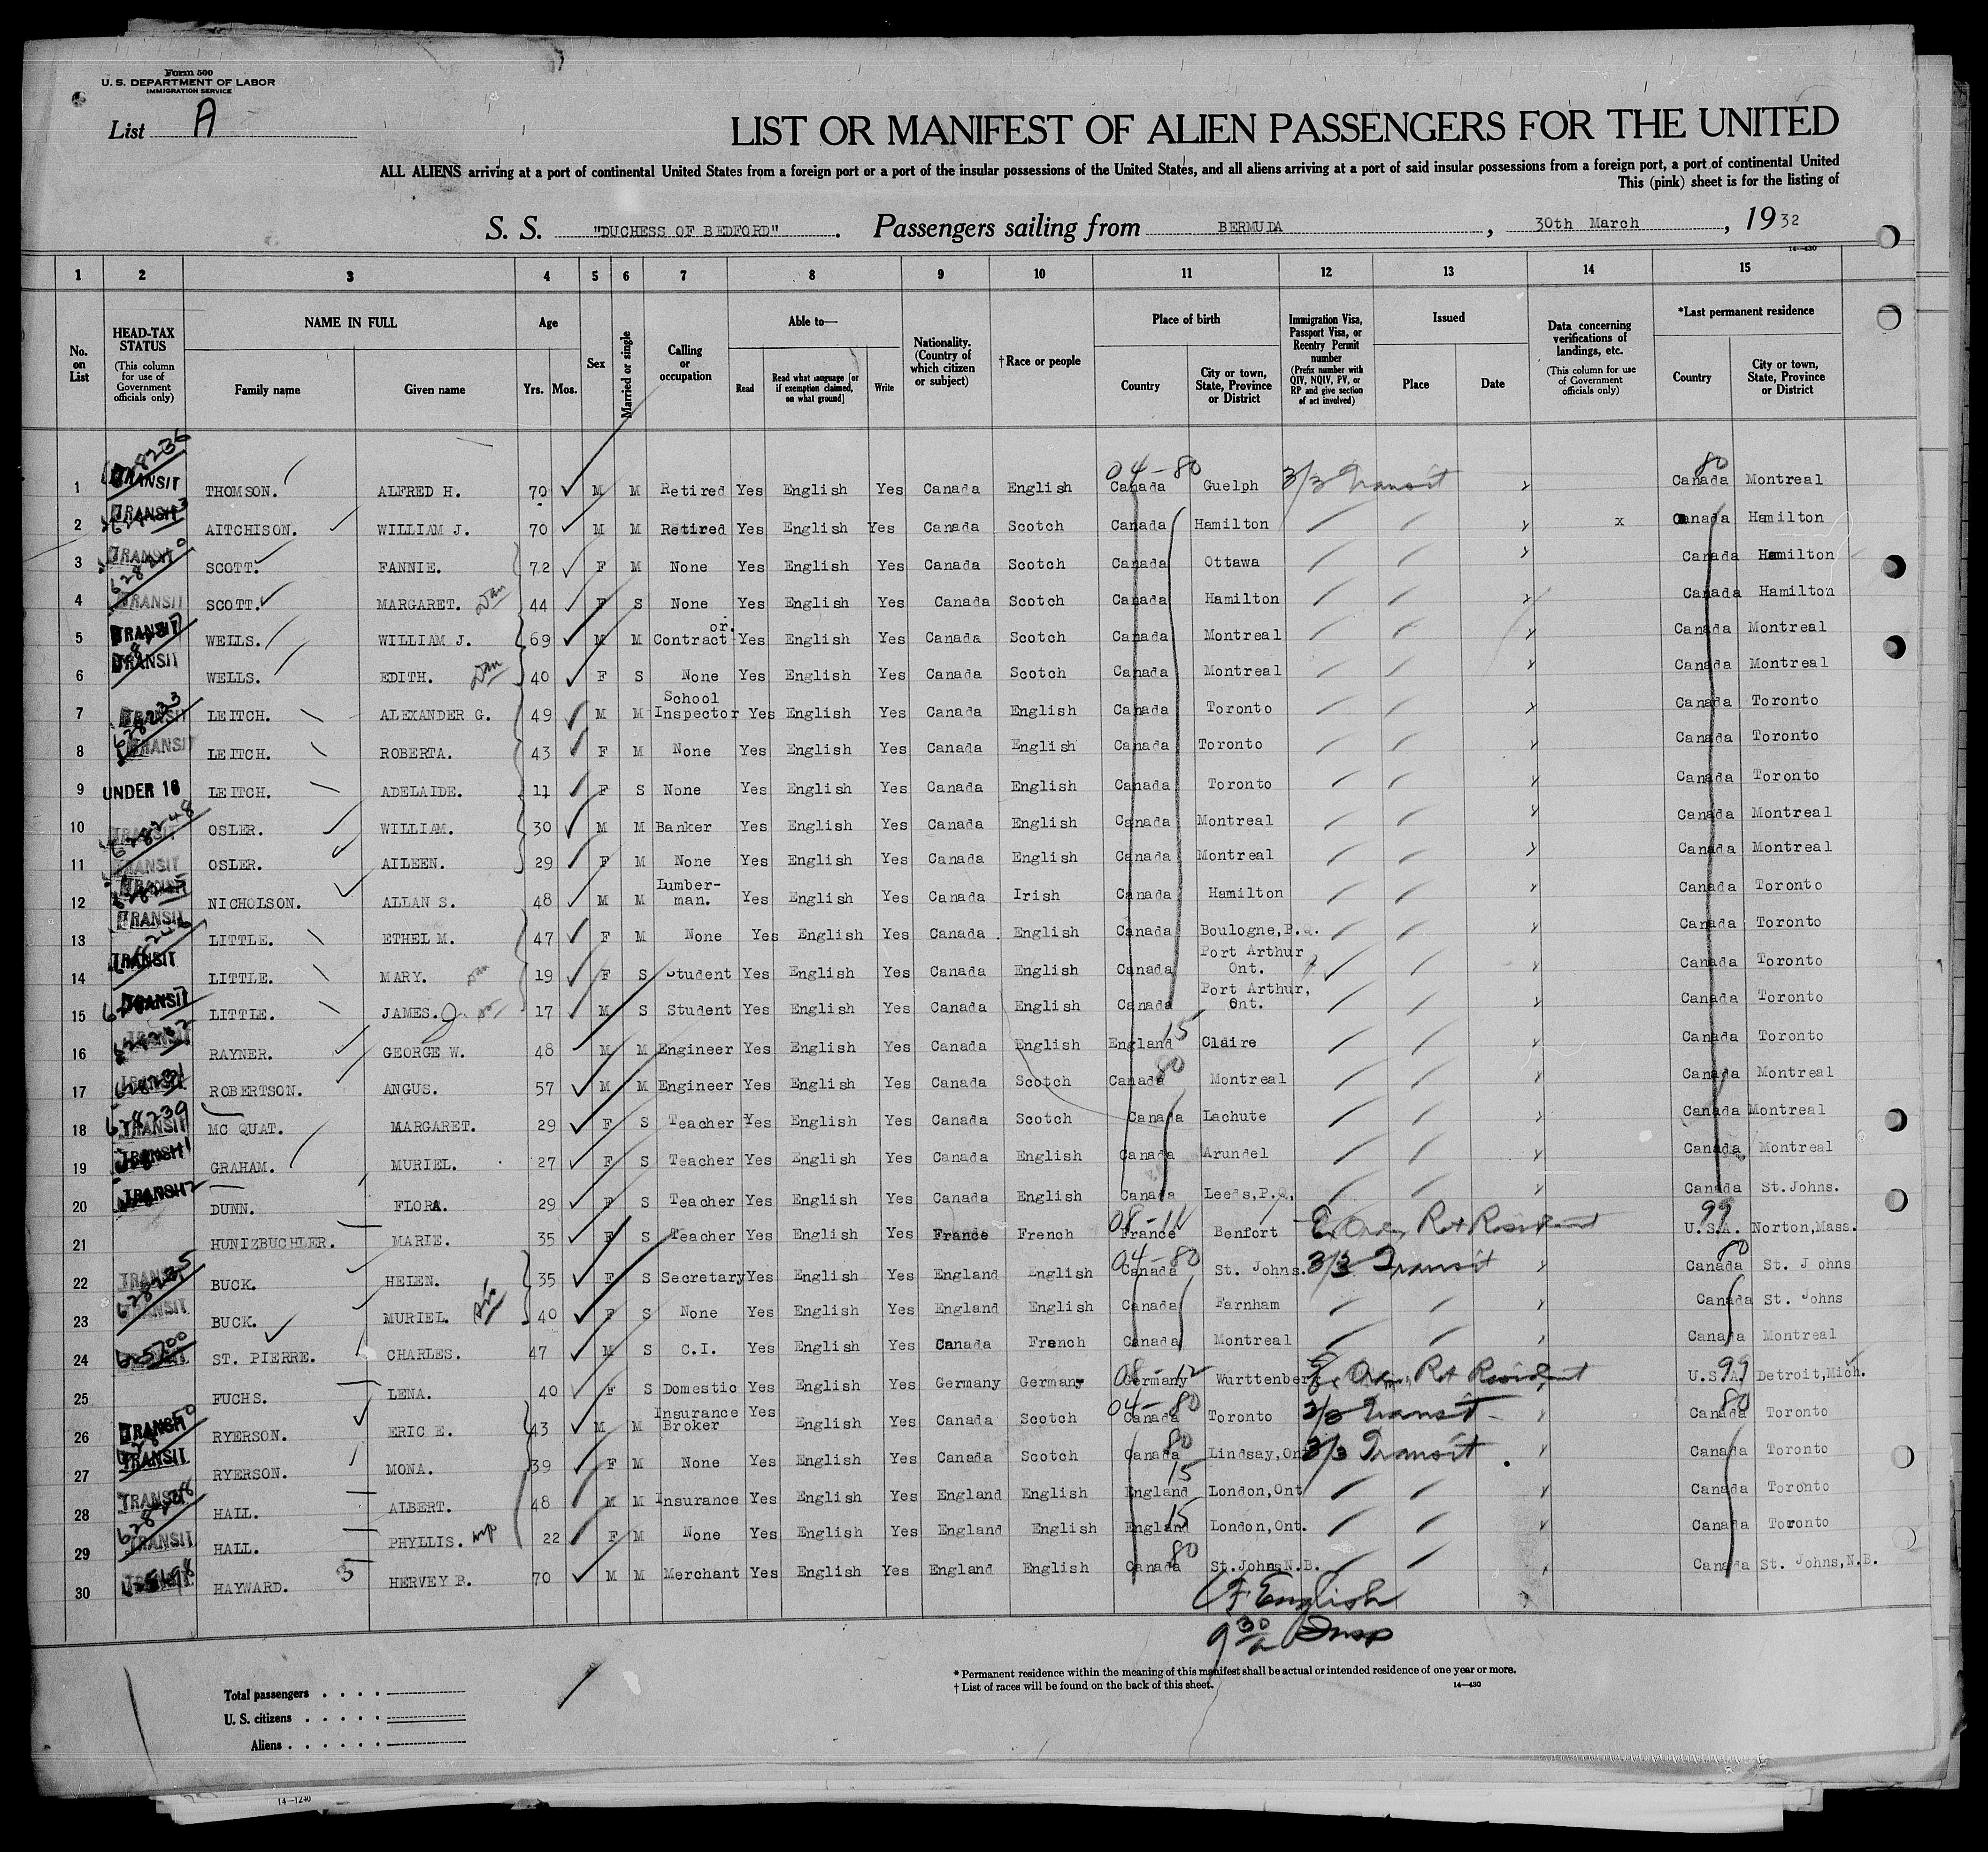 Form 500
U. S. DEPARTMENT OF LABOR
IMMIGRATION SERVICE
List A
LIST OR MANIFEST OF ALIEN PASSENGERS FOR THE UNITED
ALL ALIENS arriving at a port of continental United States from a foreign port or a port of the insular possessions of the United States, and all aliens arriving at a port of said insular possessions from a foreign port, a port of continental United
This (pink) sheet is for the listing of
S. S. "DUCHESS OF BEDFORD". Passengers sailing from BERMUDA, 30th March, 1932
14—430
1 2 3 4 5 6 7 8 9 10 11 12 13 14 15
No. on List
HEAD-TAX STATUS (This column for use of Government officials only)
NAME IN FULL Family name Given name
Age Yrs. Mos.
Sex
Married or single
Calling or occupation
Able to— Read Read what language [or if exemption claimed, on what ground] Write
Nationality. (Country of which citizen or subject)
†Race or people
Place of birth Country City or town, State, Province or District
Immigration Visa, Passport Visa, or Reentry Permit number (Prefix number with QIV, NQIV, PV, or RP and give section of act involved)
Issued Place Date
Data concerning verifications of landings, etc. (This column for use of Government officials only)
*Last permanent residence Country City or town, State, Province or District
04-80 80
1 TRANSIT THOMSON. ALFRED H. 70 M M Retired Yes English Yes Canada English Canada Guelph 3/3 Transit Canada Montreal
2 TRANSIT AITCHISON. WILLIAM J. 70 M M Retired Yes English Yes Canada Scotch Canada Hamilton x Canada Hamilton
3 TRANSIT SCOTT. FANNIE. 72 F M None Yes English Yes Canada Scotch Canada Ottawa Canada Hamilton
4 TRANSIT SCOTT. MARGARET. Dau 44 F S None Yes English Yes Canada Scotch Canada Hamilton Canada Hamilton
5 TRANSIT WELLS. WILLIAM J. 69 M M Contractor. Yes English Yes Canada Scotch Canada Montreal Canada Montreal
6 TRANSIT WELLS. EDITH. Dau 40 F S None Yes English Yes Canada Scotch Canada Montreal Canada Montreal
7 TRANSIT LEITCH. ALEXANDER G. 49 M M School Inspector Yes English Yes Canada English Canada Toronto Canada Toronto
8 TRANSIT LEITCH. ROBERTA. 43 F M None Yes English Yes Canada English Canada Toronto Canada Toronto
9 UNDER 16 LEITCH. ADELAIDE. 11 F S None Yes English Yes Canada English Canada Toronto Canada Toronto
10 TRANSIT 628248 OSLER. WILLIAM. 30 M M Banker Yes English Yes Canada English Canada Montreal Canada Montreal
11 TRANSIT OSLER. AILEEN. 29 F M None Yes English Yes Canada English Canada Montreal Canada Montreal
12 TRANSIT NICHOLSON. ALLAN S. 48 M M Lumber-man. Yes English Yes Canada Irish Canada Hamilton Canada Toronto
13 TRANSIT LITTLE. ETHEL M. 47 F M None Yes English Yes Canada English Canada Boulogne,P.Q. Canada Toronto
14 TRANSIT LITTLE. MARY. Dau 19 F S Student Yes English Yes Canada English Canada Port Arthur, Ont. Canada Toronto
15 TRANSIT LITTLE. JAMES. 17 M S Student Yes English Yes Canada English Canada Port Arthur, Ont. Canada Toronto
16 TRANSIT RAYNER. GEORGE W. 48 M M Engineer Yes English Yes Canada English England 15 Claire Canada Toronto
17 TRANSIT ROBERTSON. ANGUS. 57 M M Engineer Yes English Yes Canada Scotch Canada 80 Montreal Canada Montreal
18 TRANSIT 628239 MC QUAT. MARGARET. 29 F S Teacher Yes English Yes Canada Scotch Canada Lachute Canada Montreal
19 TRANSIT GRAHAM. MURIEL. 27 F S Teacher Yes English Yes Canada English Canada Arundel Canada Montreal
20 TRANSIT DUNN. FLORA. 29 F S Teacher Yes English Yes Canada English Canada Leeds,P.Q. Canada St.Johns.
21 HUNIZBUCHLER. MARIE. 35 F S Teacher Yes English Yes France French 08-11 France Benfort Ret Resident 99 U.S.A. Norton,Mass.
22 TRANSIT 628235 BUCK. HELEN. 35 F S Secretary Yes English Yes England English 04-80 Canada St. Johns. 3/3 Transit 80 Canada St. Johns
23 TRANSIT BUCK. MURIEL. Sis 40 F S None Yes English Yes England English Canada Farnham Canada St. Johns
24 ST. PIERRE. CHARLES. 47 M S C.I. Yes English Yes Canada French Canada Montreal Canada Montreal
25 FUCHS. LENA. 40 F S Domestic Yes English Yes Germany Germany 08-12 Germany Wurttenberg Ret Resident 99 U.S.A. Detroit,Mich.
26 TRANSIT RYERSON. ERIC E. 43 M M Insurance Broker Yes English Yes Canada Scotch 04-80 Canada Toronto 3/3 Transit 80 Canada Toronto
27 TRANSIT RYERSON. MONA. 39 F M None Yes English Yes Canada Scotch Canada 80 Lindsay,Ont 3/3 Transit Canada Toronto
28 TRANSIT HALL. ALBERT. 48 M M Insurance Yes English Yes England English England 15 London,Ont Canada Toronto
29 TRANSIT HALL. PHYLLIS. 22 F M None Yes English Yes England English England 15 London,Ont. Canada Toronto
30 HAYWARD. 3 HERVEY B. 70 M M Merchant Yes English Yes England English Canada 80 St.Johns,N.B. Canada St. Johns,N.B.
English
9 30 a Insp
* Permanent residence within the meaning of this manifest shall be actual or intended residence of one year or more.
† List of races will be found on the back of this sheet.
14—430
Total passengers
U. S. citizens
Aliens
14—1240